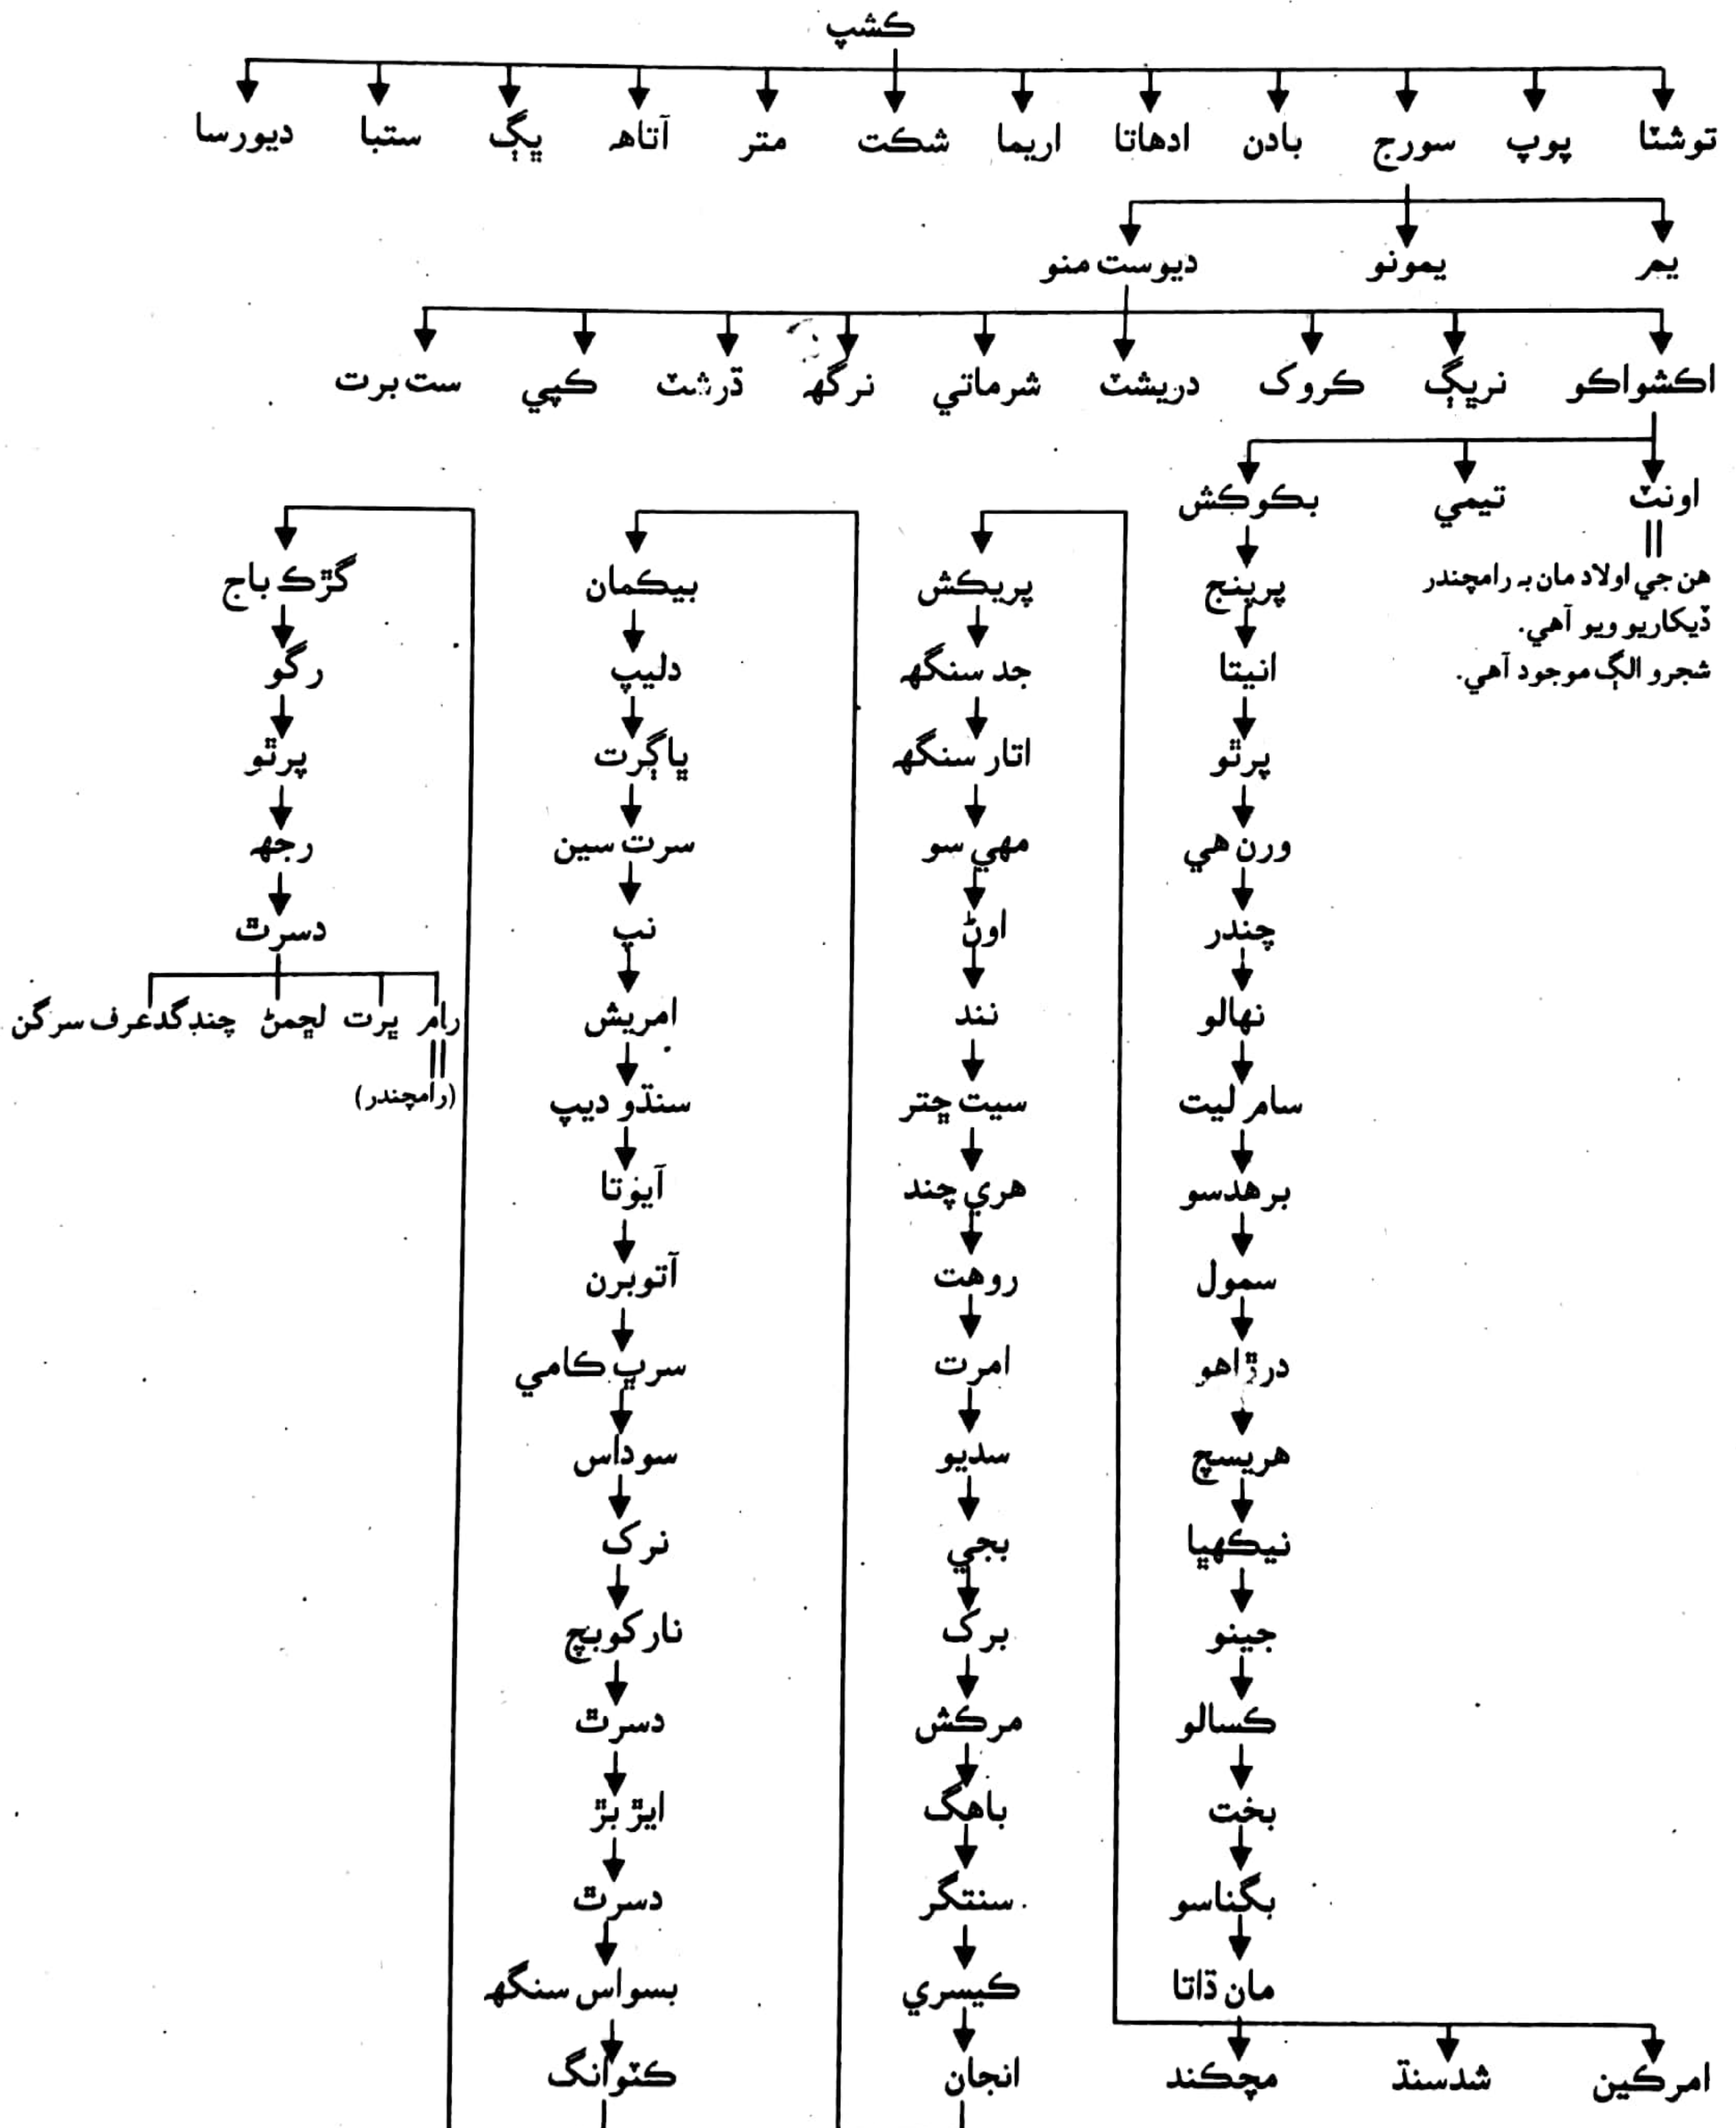 ڪشپ
توشٽا پوپ سورج بادن ادهاتا اريما شڪت متر آتاهہ ڀڳ ستبا ديورسا
يمر يمونو ديوست منو
اڪشواڪو نرڀڳ ڪروک دريشٽ شرماتي نرگهہ ڌرشٽ ڪپي ست برت
اونٽ تيمي بڪوڪش
هن جي اولاد مان بہ رامچندر
ڏيکاريو ويو آهي.
شجرو الڳ موجود آهي.
پرپنج
انيتا
پرٿو
ورن هي
چندر
نهالو
سامر ليت
برهدسو
سمول
درڙاهو
هريسچ
نيڪهيا
جينو
ڪسالو
بخت
بگناسو
مان ڌاتا
امرڪين شدسنڌ مچڪند
پريڪش
جد سنگهہ
اتار سنگهہ
مهي سو
اوڻ
نند
سيت ڇتر
هري چند
روهت
امرت
سديو
بجي
برک
مرڪش
باهگ
سنتگر
ڪيسري
انجان
بيڪمان
دليپ
ڀاڳرت
سرت سين
نپ
امريش
سنڌو ديپ
آيوتا
آتوبرن
سرڀ ڪامي
سوداس
نرک
نارڪوبچ
دسرٿ
ايڙ بڙ
دسرٿ
بسواس سنگهہ
ڪٽوانگ
گڙڪ باج
رگو
پرٿو
رجهہ
دسرٿ
رامر ڀرت لڇمڻ چندگدعرف سرگن
(رامچندر)